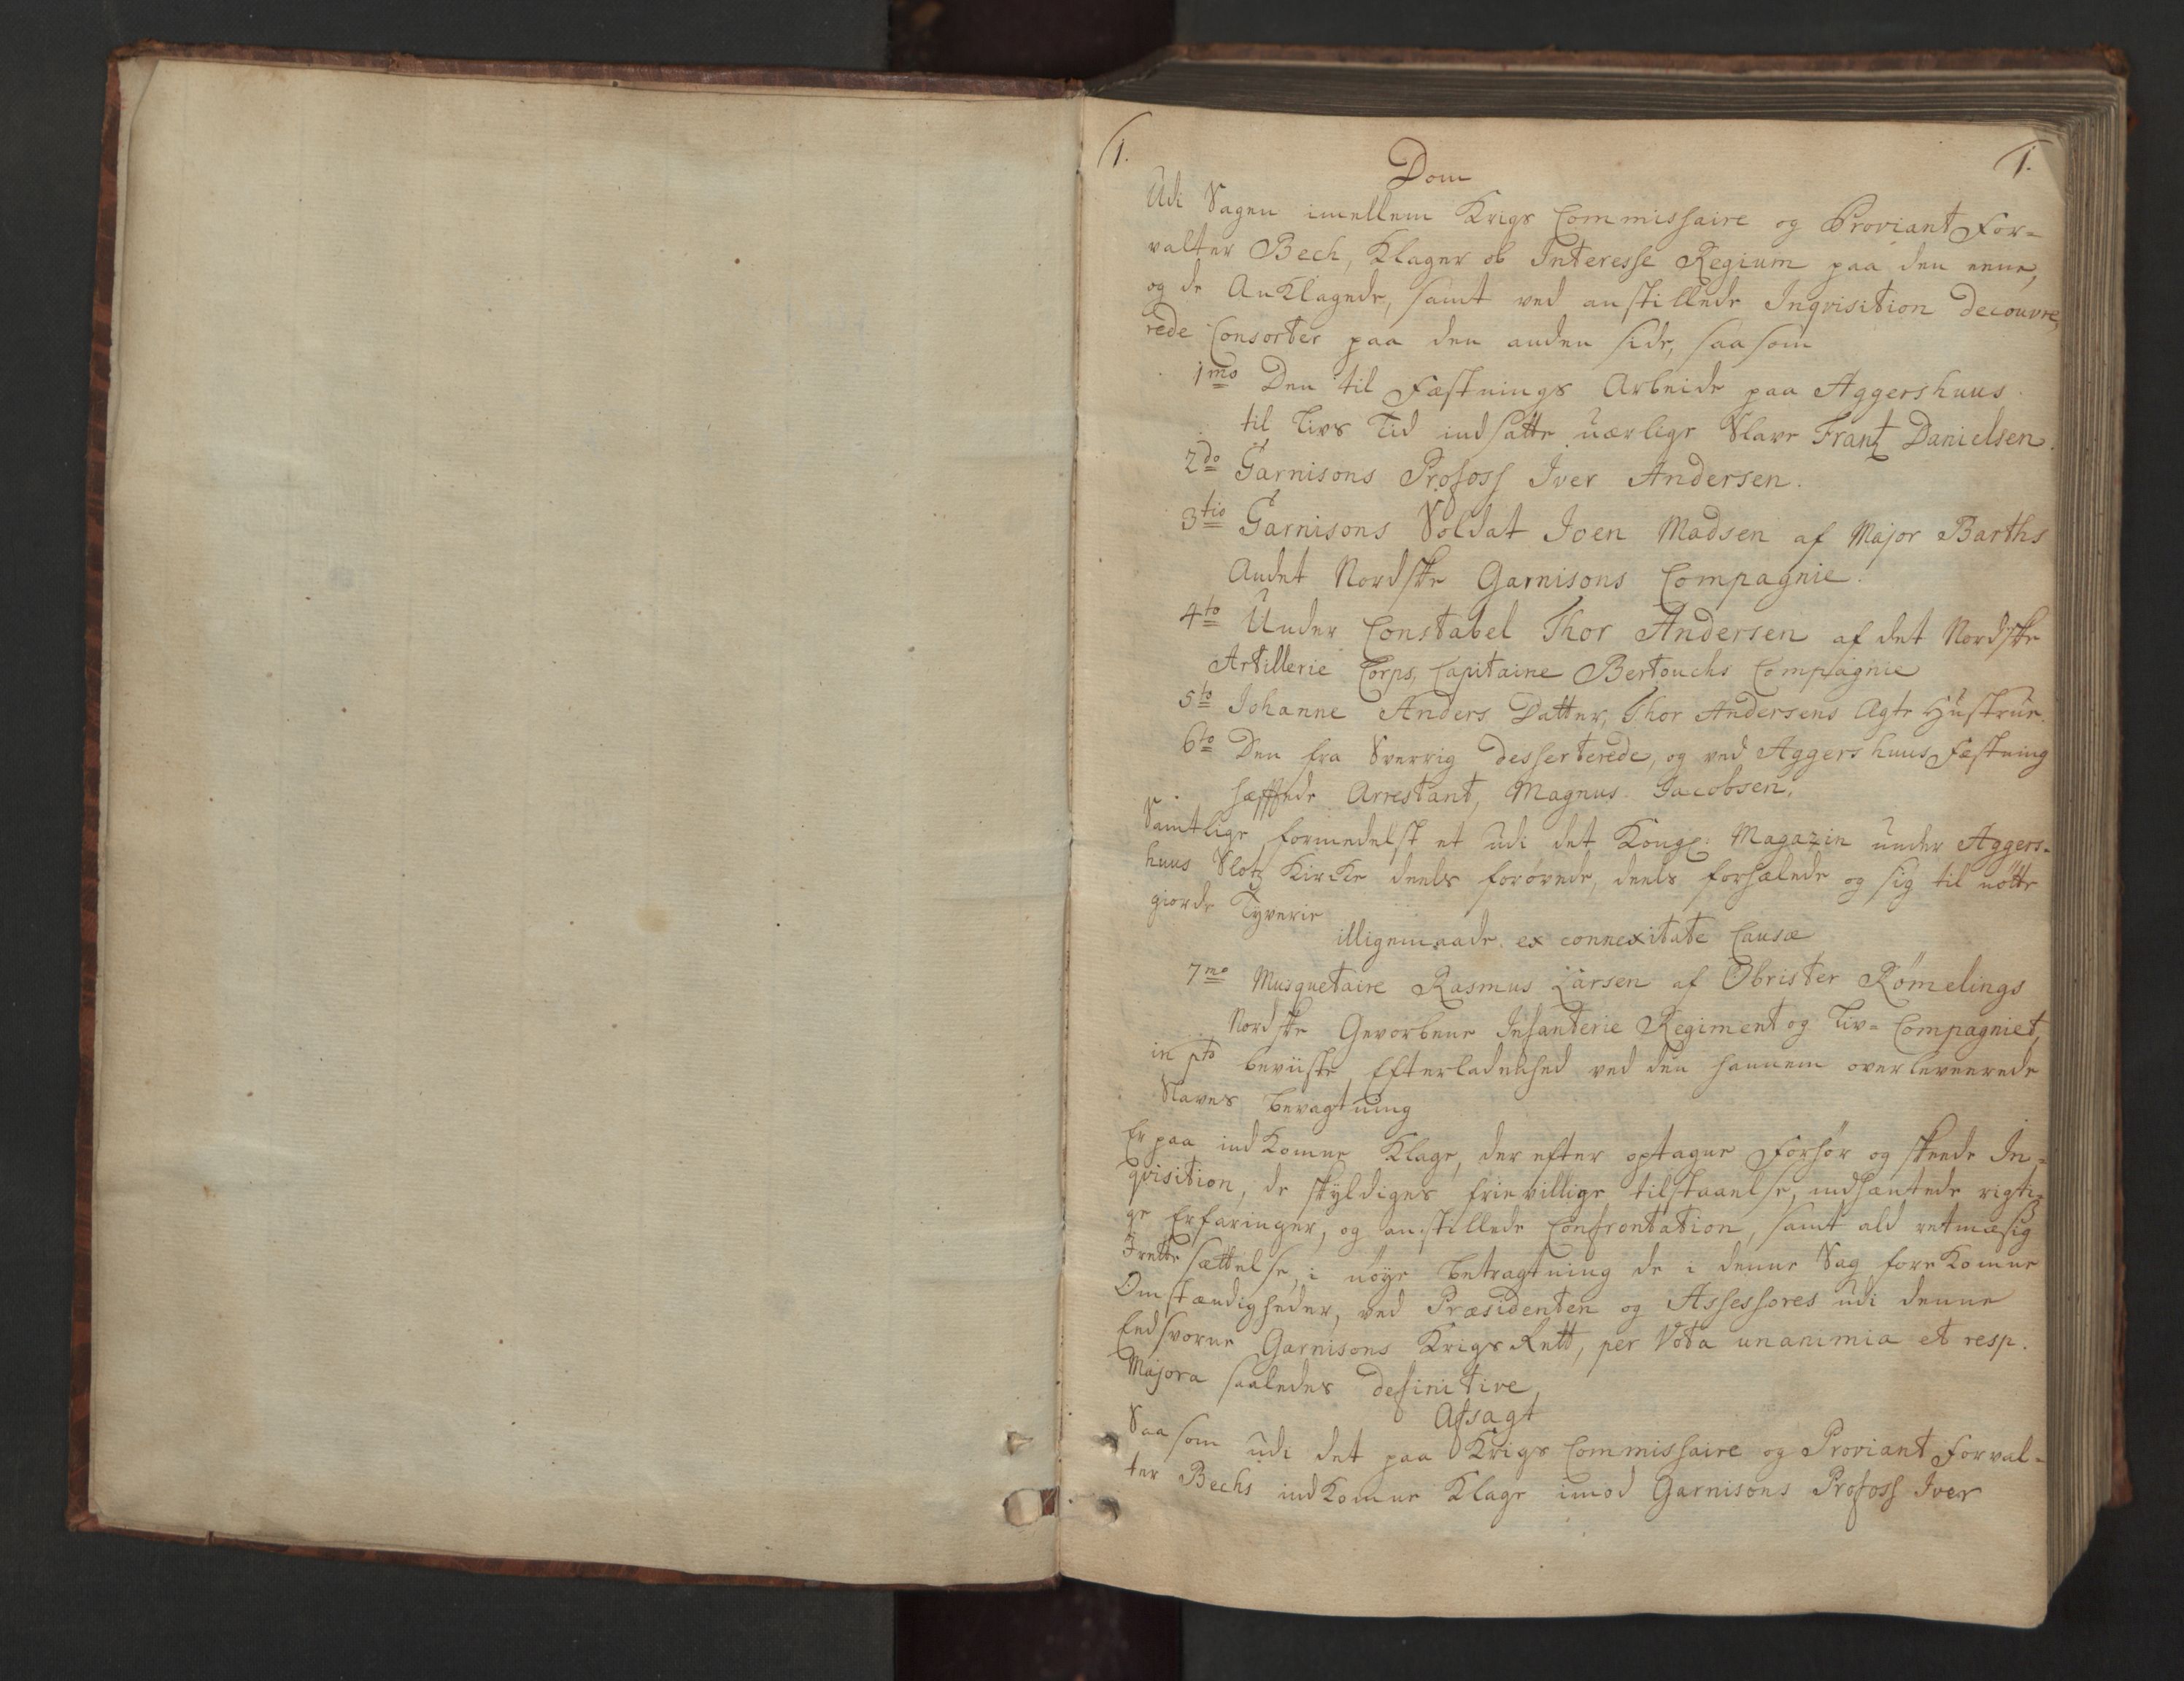 1.
1.
Dom
Udi Sagen imellem Krigs Commissaire og Proviant For=
valter Bech, Klager ob Interesse Regium paa den eene,
og de Anklagede, samt ved anstillede Inqvisition decouvre,
rede Consorter paa den anden side, saasom
1mo Den til Fæstnings Arbeide paa Aggershuus
til Livs Tid indsatte uærlige Slave Frantz Danielsen.
2do Garnisons Profoss Iver Andersen.
3tio Garnisons Soldat Joen Madsen af Major Barths
Andet Nordske Garnisons Compagnie.
4to Under Constabel Thor Andersen af det Nordske
Artillerie Corps, Capitaine Bertouchs Compagnie
5to Johanne Anders Datter, Thor Andersens Ægte Hustrue.
6to Den fra Sverrig desserterede, og ved Aggershuus Fæstning
hæftede Arrestant, Magnus Jacobsen,
Samtlige formedelst et udi det Kongl: Magazin under Aggers=
huus Slotz Kircke deels forøvede, deels forhælede og sig til nøtte
giorde Tyverie
illigemaade ex connexitate Causæ
7mo Musquetaire Rasmus Larsen af Obrister Rømelings
Nordske Gevorbene Infanterie Regiment og Liv= Compagniet,
in pto beviiste Efterladenhed ved den hannem overleveerede
Slaves bevagtning
Er paa indkomne Klage, der efter optagne Forhør og skeede In=
qvisition, de skyldiges frievillige tilstaaelse, indhæntede rigti=
ge Erfaringer, og anstillede Confrontation, samt ald retmæsig
Irettesættelse, i nøye betragtning de i denne Sag forekomne
Omstændigheder, ved Præsidenten og Assessores udi denne
Eedsvorne Garnisons Krigs Rett, per Vota unanimia et resp.
Majora saaledes definitive,
Afsagt
Saasom udi det paa Krigs Commissaire og Proviant Forval=
ter Bechs indkomne Klage imod Garnisons Profoss Iver